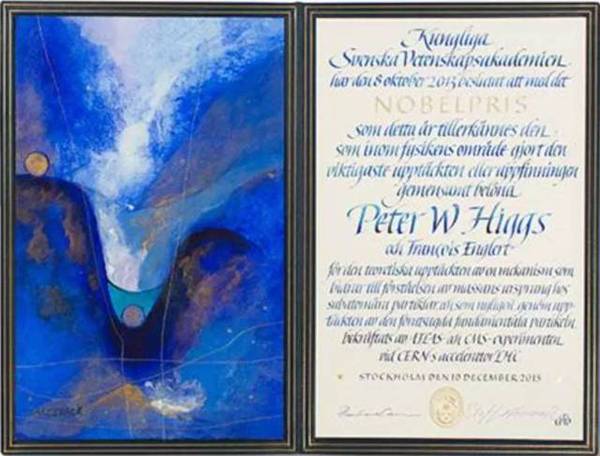 Kungliga
Svenska Vetenskapsakademien
har den 8 oktober 2013 beslutat att med det
NOBELPRIS
som detta år tillerkännes den
som inom fysikens område gjort den
viktigaste upptäckten eller uppfinningen
gemensamt belöna
Peter W Higgs
och François Englert
för den teoretiska upptäckten av en mekanism som
bidrar till förståelsen av massans ursprung hos
subatomära partiklar, och som nyligen, genom upp-
täckten av den förutsagda fundamentala partikeln,
bekräftats av ATLAS- och CMS-experimenten
vid CERN:s accelerator LHC
STOCKHOLM DEN 10 DECEMBER 2013